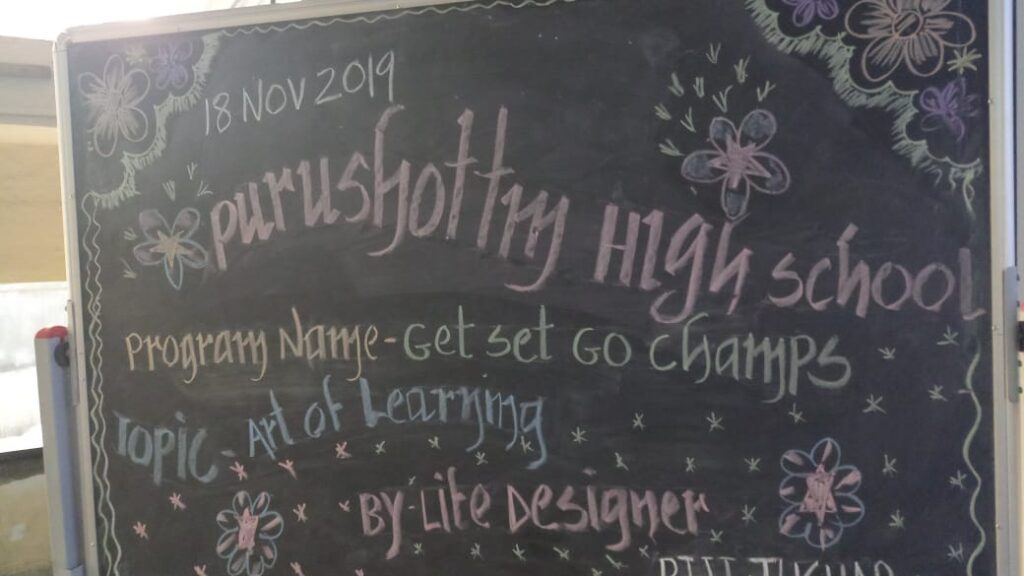 18 NOV 2019
purushottm High school
Program Name - Get set Go champs
Topic - Art of Learning
BY - Life Designer